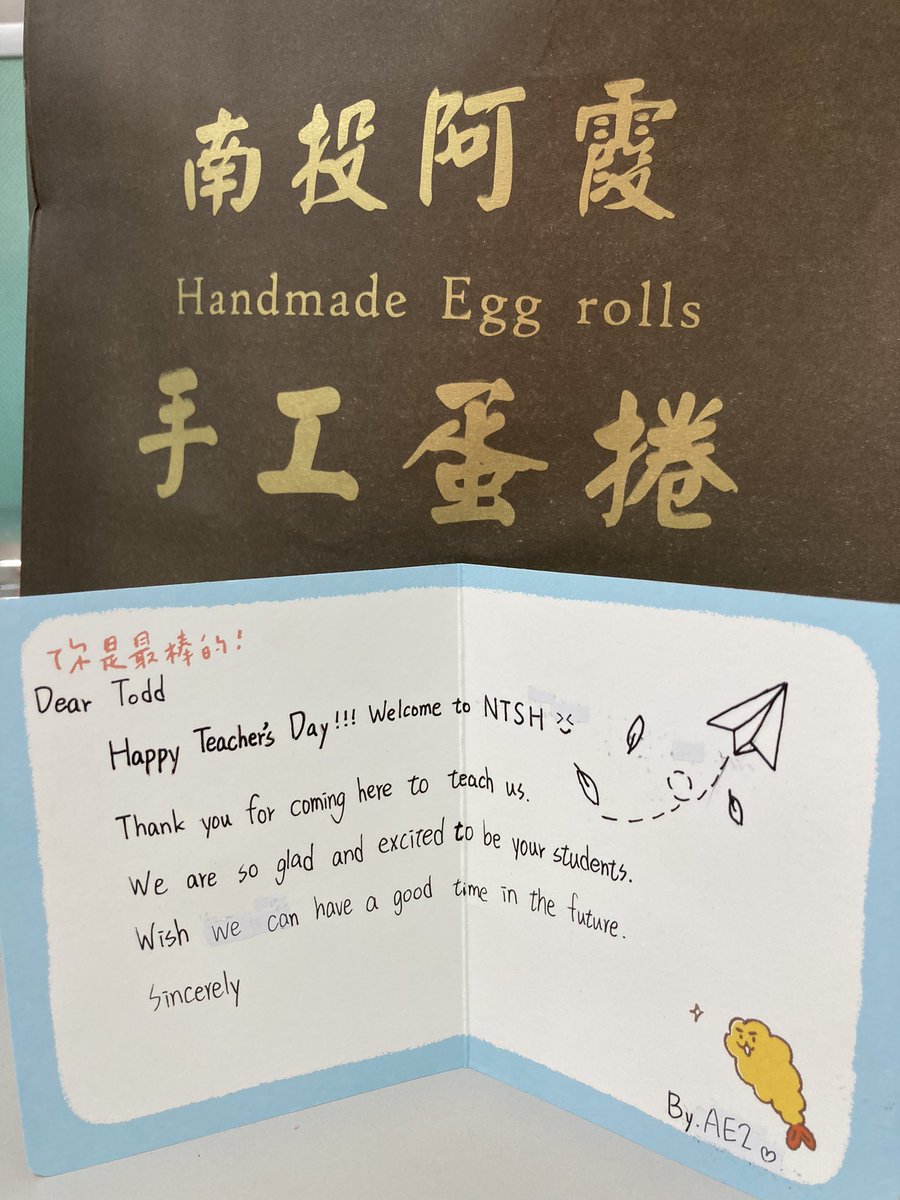 南投阿霞
Handmade Egg rolls
手工蛋捲
你是最棒的!
Dear Todd
Happy Teacher's Day!!! Welcome to NTSH
Thank you for coming here to teach us.
We are so glad and excited to be your students.
Wish we can have a good time in the future.
Sincerely
By. AE2